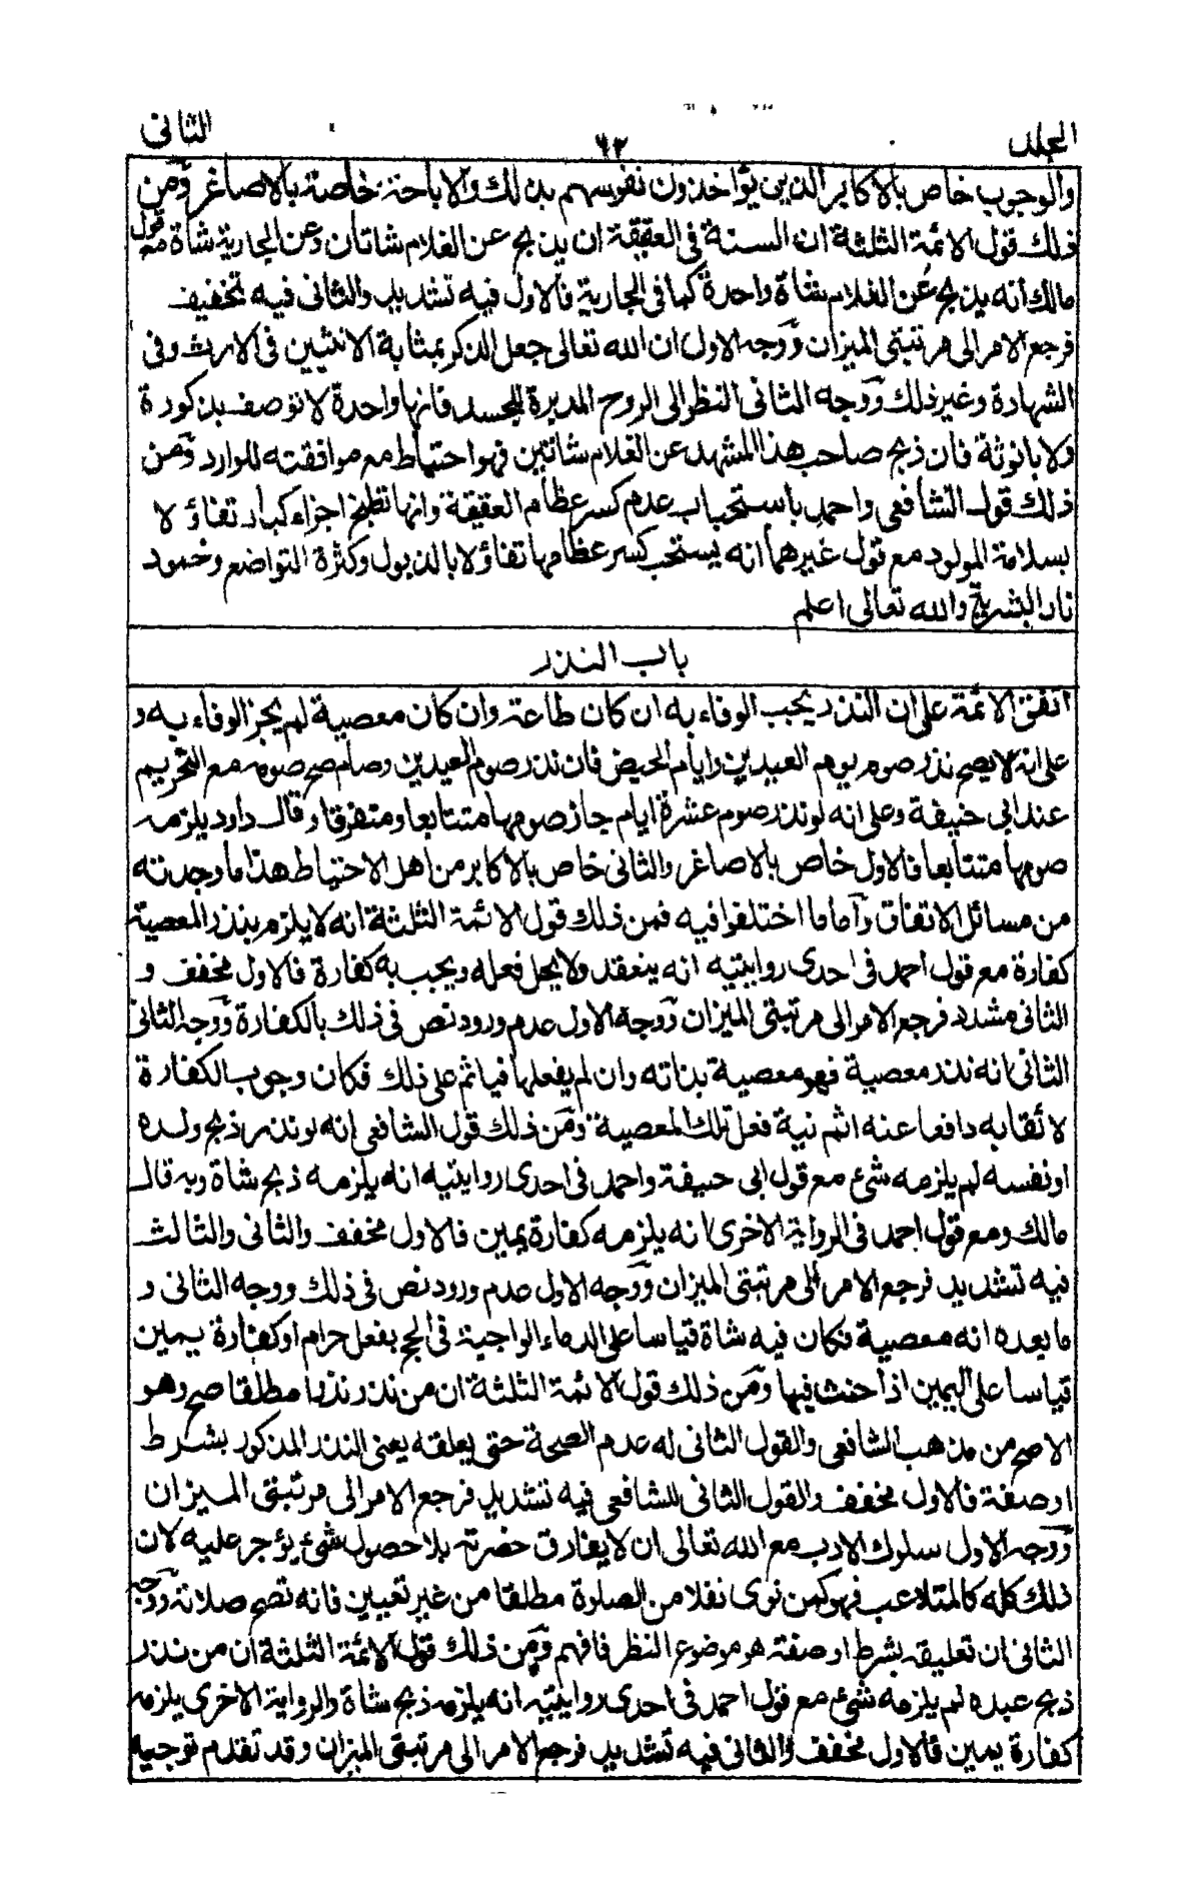 المجلد ٦٢ الثانى
والوجوب خاص بالاكابر الذين يؤاخذون نفوسهم بذلك والاباحة خاصة بالاصاغر ومن
ذلك قول الائمة الثلثة ان السنة فى العقيقة ان يذبح عن الغلام شاتان وعن الجارية شاة مع قول
مالك انه يذبح عن الغلام شاة واحدة كما فى الجارية فالاول فيه تشديد والثانى فيه تخفيف
فرجع الامر الى مرتبتى الميزان ووجه الاول ان الله تعالى جعل الذكر بمثابة الانثيين فى الارث وفى
الشهادة وغير ذلك ووجه الثانى النظر الى الروح المدبرة للجسد فانها واحدة لا توصف بذكورة
ولا بانوثة فان ذبح صاحب هذا المشهد عن الغلام شاتين فهو احتياط مع موافقته للوارد ومن
ذلك قول الشافعى واحمد باستحباب عدم كسر عظام العقيقة وانها تطبخ اجزاء كبار تفاؤلا
بسلامة المولود مع قول غيرهما انه يستحب كسر عظامها تفاؤلا بالذبول وكثرة التواضع وخمود
نار البشرية والله تعالى اعلم
باب النذر
اتفق الائمة على ان النذر يجب الوفاء به ان كان طاعة وان كان معصية لم يجز الوفاء به و
على انه لا يصح نذر صوم يوم العيدين وايام الحيض فان نذر صوم العيدين وصام صح صومه مع التحريم
عند ابى حنيفة وعلى انه لو نذر صوم عشرة ايام جاز صومها متتابعا ومتفرقا وقال داود يلزمه
صومها متتابعا فالاول خاص بالاصاغر والثانى خاص بالاكابر من اهل الاحتياط هذا ما وجدته
من مسائل الاتفاق واما ما اختلفوا فيه فمن ذلك قول الائمة الثلثة انه لا يلزم بنذر المعصية
كفارة مع قول احمد فى احدى روايتيه انه ينعقد ولا يحل فعله ويجب به كفارة فالاول مخفف و
الثانى مشدد فرجع الامر الى مرتبتى الميزان ووجه الاول عدم ورود نص فى ذلك بالكفارة ووجه الثانى
الثانى انه نذر معصية فهو معصية بذاته وان لم يفعلها فياثم على ذلك فكان وجوب الكفارة
لائقا به دافعا عنه اثم نية فعل تلك المعصية ومن ذلك قول الشافعى انه لو نذر ذبح ولده
او نفسه لم يلزمه شئ مع قول ابى حنيفة واحمد فى احدى روايتيه انه يلزمه ذبح شاة وبه قال
مالك ومع قول احمد فى الرواية الاخرى انه يلزمه كفارة يمين فالاول مخفف والثانى والثالث
فيه تشديد فرجع الامر الى مرتبتى الميزان ووجه الاول عدم ورود نص فى ذلك ووجه الثانى و
ما بعده انه معصية فكان فيه شاة قياسا على الدماء الواجبة فى الحج بفعل حرام او كفارة يمين
قياسا على اليمين اذا حنث فيها ومن ذلك قول الائمة الثلثة ان من نذر نذرا مطلقا صح وهو
الاصح من مذهب الشافعى والقول الثانى له عدم الصحة حتى يعلقه يعنى النذر المذكور بشرط
او صفة فالاول مخفف والقول الثانى للشافعى فيه تشديد فرجع الامر الى مرتبتى الميزان
ووجه الاول سلوك الادب مع الله تعالى ان لا يفارق حضرته بلا حصول شئ يؤجر عليه لان
ذلك كله كالمتلاعب فهو كمن نوى نفلا من الصلوة مطلقا من غير تعيين فانه تصح صلاته ووجه
الثانى ان تعليقه بشرط او صفته هو موضوع النظر فافهم ومن ذلك قول الائمة الثلثة ان من نذر
ذبح عبده لم يلزمه شئ مع قول احمد فى احدى روايتيه انه يلزمه ذبح شاة والرواية الاخرى يلزمه
كفارة يمين فالاول مخفف والثانى فيه تشديد فرجع الامر الى مرتبتى الميزان وقد تقدم توجيه